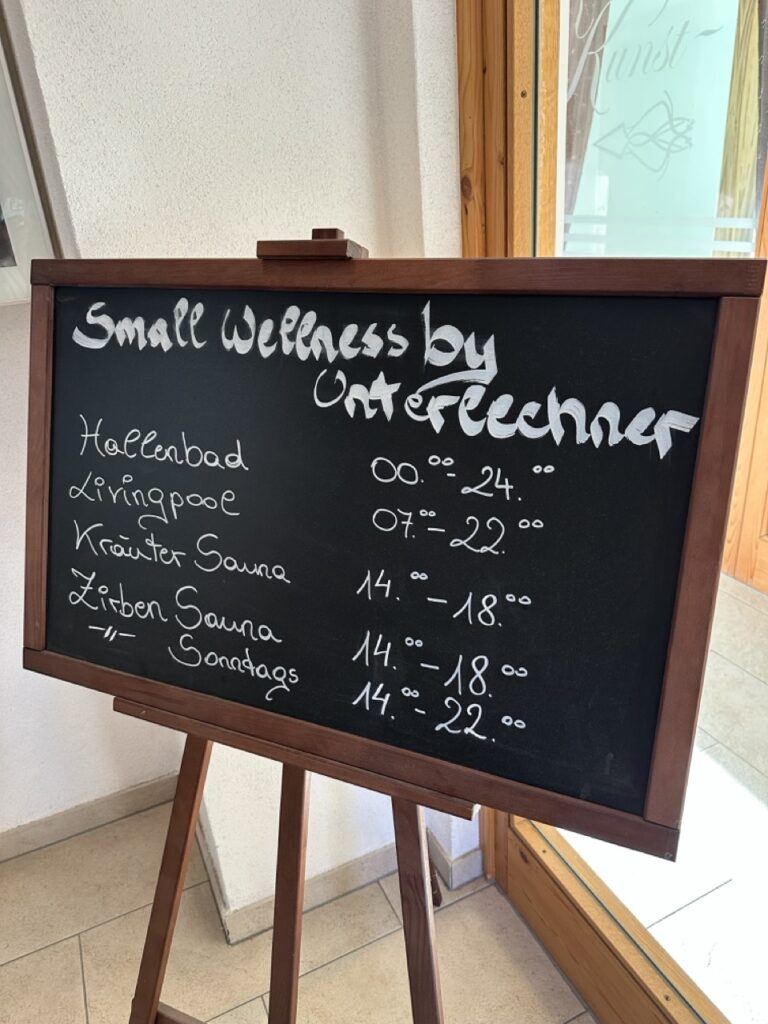 Kunst-
Small Wellness by
Unterlechner
Hallenbad 00.00-24.00
Livingpool 07.00-22.00
Kräuter Sauna 14.00-18.00
Zirben Sauna 14.00-18.00
-"- Sonntags 14.00-22.00